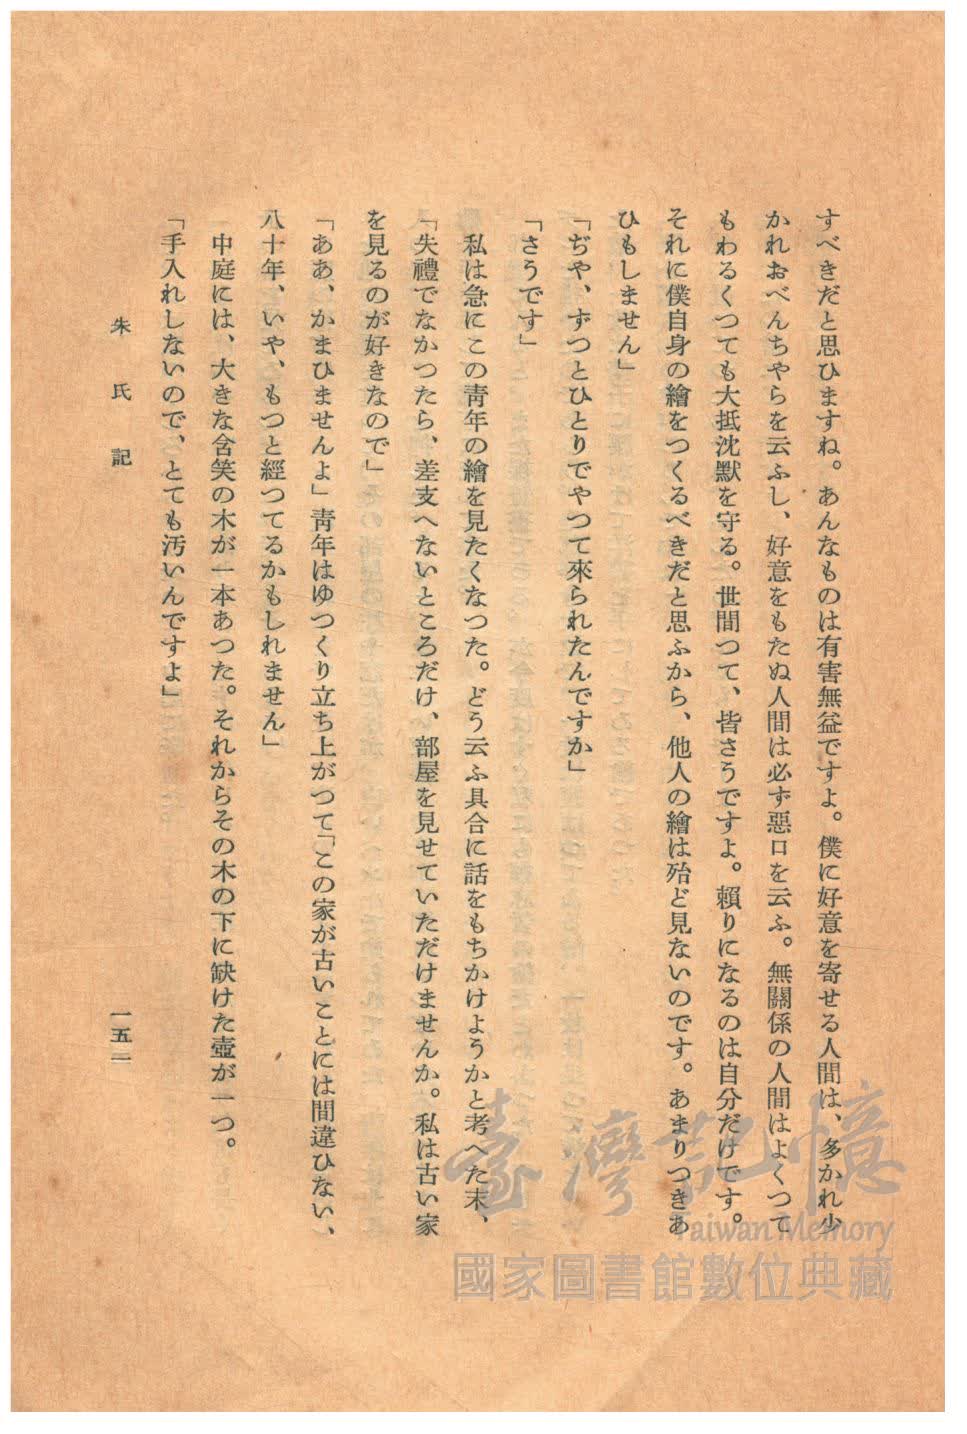 すべきだと思ひますね。あんなものは有害無益ですよ。僕に好意を寄せる人間は、多かれ少
かれおべんちやらを云ふし、好意をもたぬ人間は必ず惡口を云ふ。無關係の人間はよくつて
もわるくつても大抵沈默を守る。世間つて、皆さうですよ。賴りになるのは自分だけです。
それに僕自身の繪をつくるべきだと思ふから、他人の繪は殆ど見ないのです。あまりつきあ
ひもしません」
「ぢや、ずつとひとりでやつて來られたんですか」
「さうです」
私は急にこの靑年の繪を見たくなつた。どう云ふ具合に話をもちかけようかと考へた末、
「失禮でなかつたら、差支へないところだけ、部屋を見せていただけませんか。私は古い家
を見るのが好きなので」
「ああ、かまひませんよ」靑年はゆつくり立ち上がつて「この家が古いことには間違ひない、
八十年、いや、もつと經つてるかもしれません」
中庭には、大きな含笑の木が一本あつた。それからその木の下に缺けた壺が一つ。
「手入れしないので、とても汚いんですよ」
朱氏記
一五一
臺灣記憶
Taiwan Memory
國家圖書館數位典藏